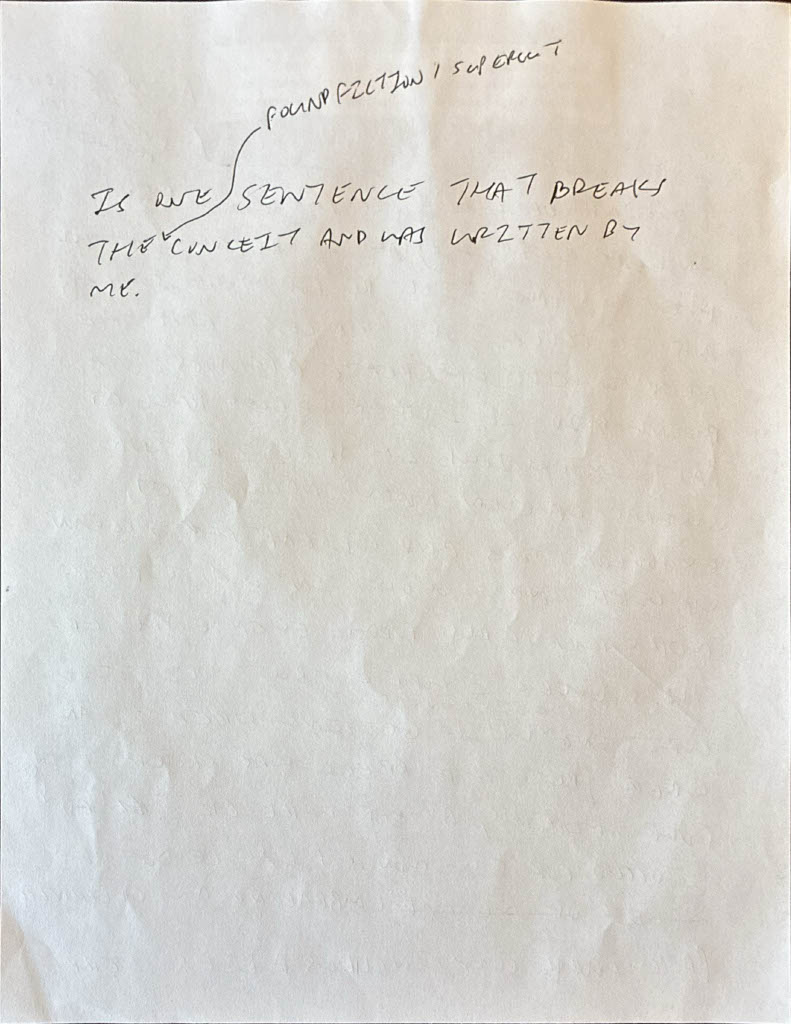 FOUND FICTION / SUPERCUT
IS ONE SENTENCE THAT BREAKS
THE CONCEIT AND WAS WRITTEN BY
ME.